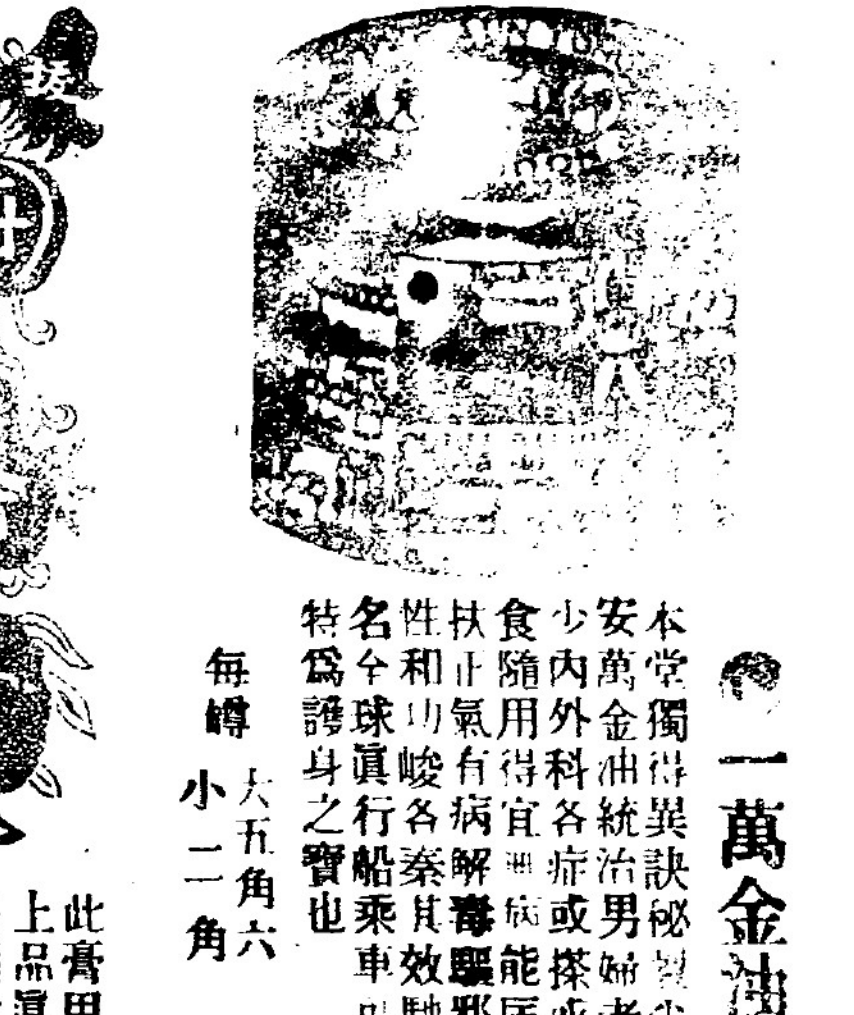 一萬金油
本堂獨得異訣秘製
安萬金油統治男婦老
少內外科各症或搽或
食隨用得宜無病能
扶正氣有病解毒驅邪
性和功峻各奏其效馳
名全球眞行船乘車
特爲護身之寶也
每罇
大五角六
小二角
此膏用
上品眞